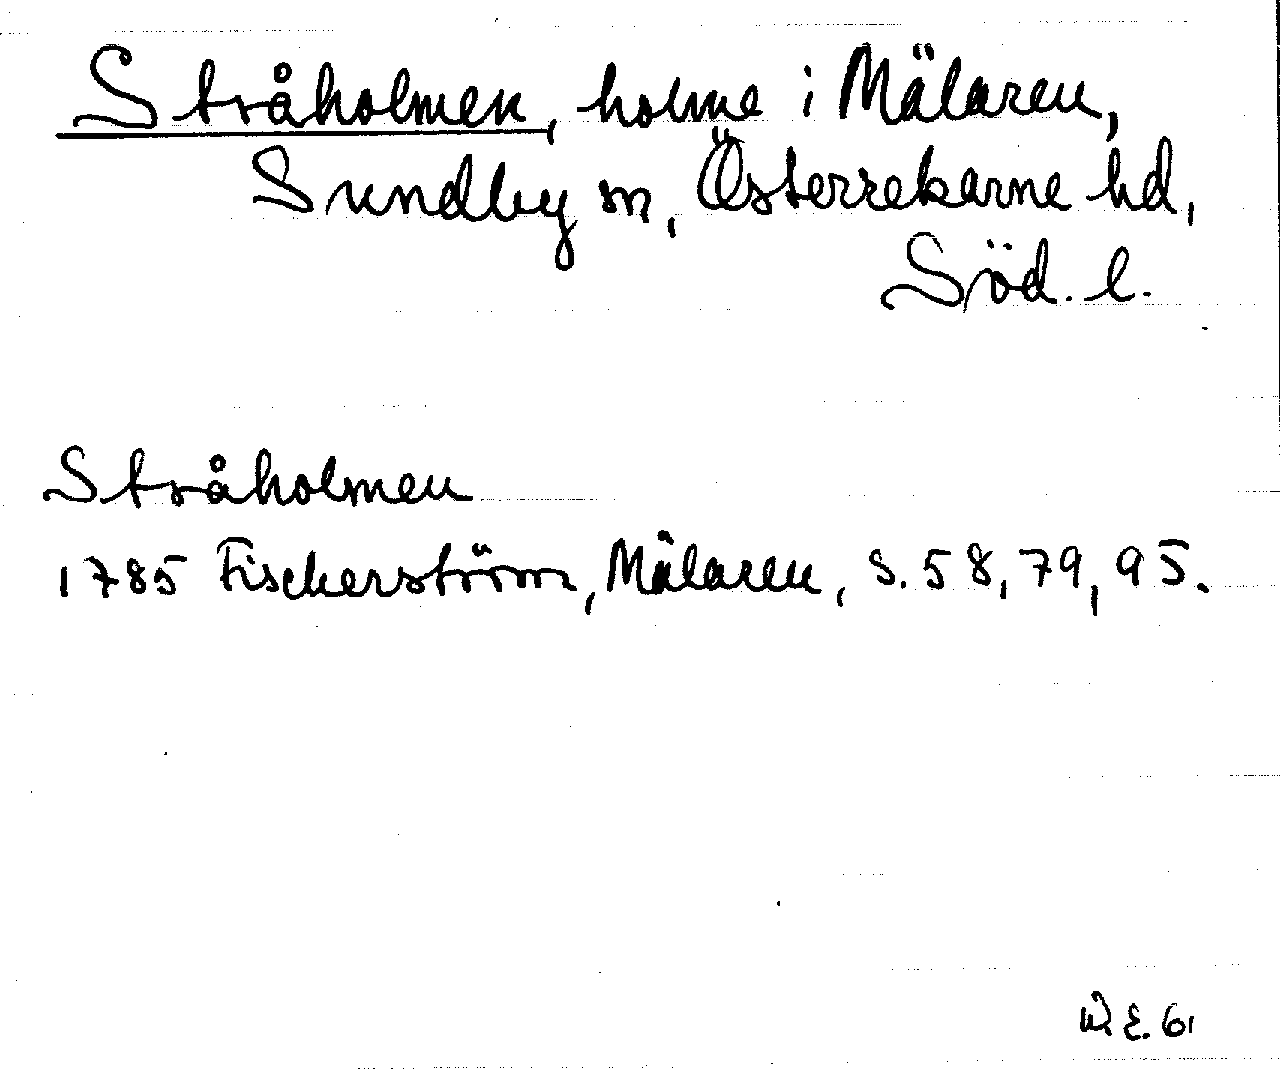 Stråholmen, holme i Mälaren,
Sundby sn, Österrekarne hd,
Söd. l.
Stråholmen
1785 Fischerström, Mälaren, S. 58, 79, 95.
E. 61